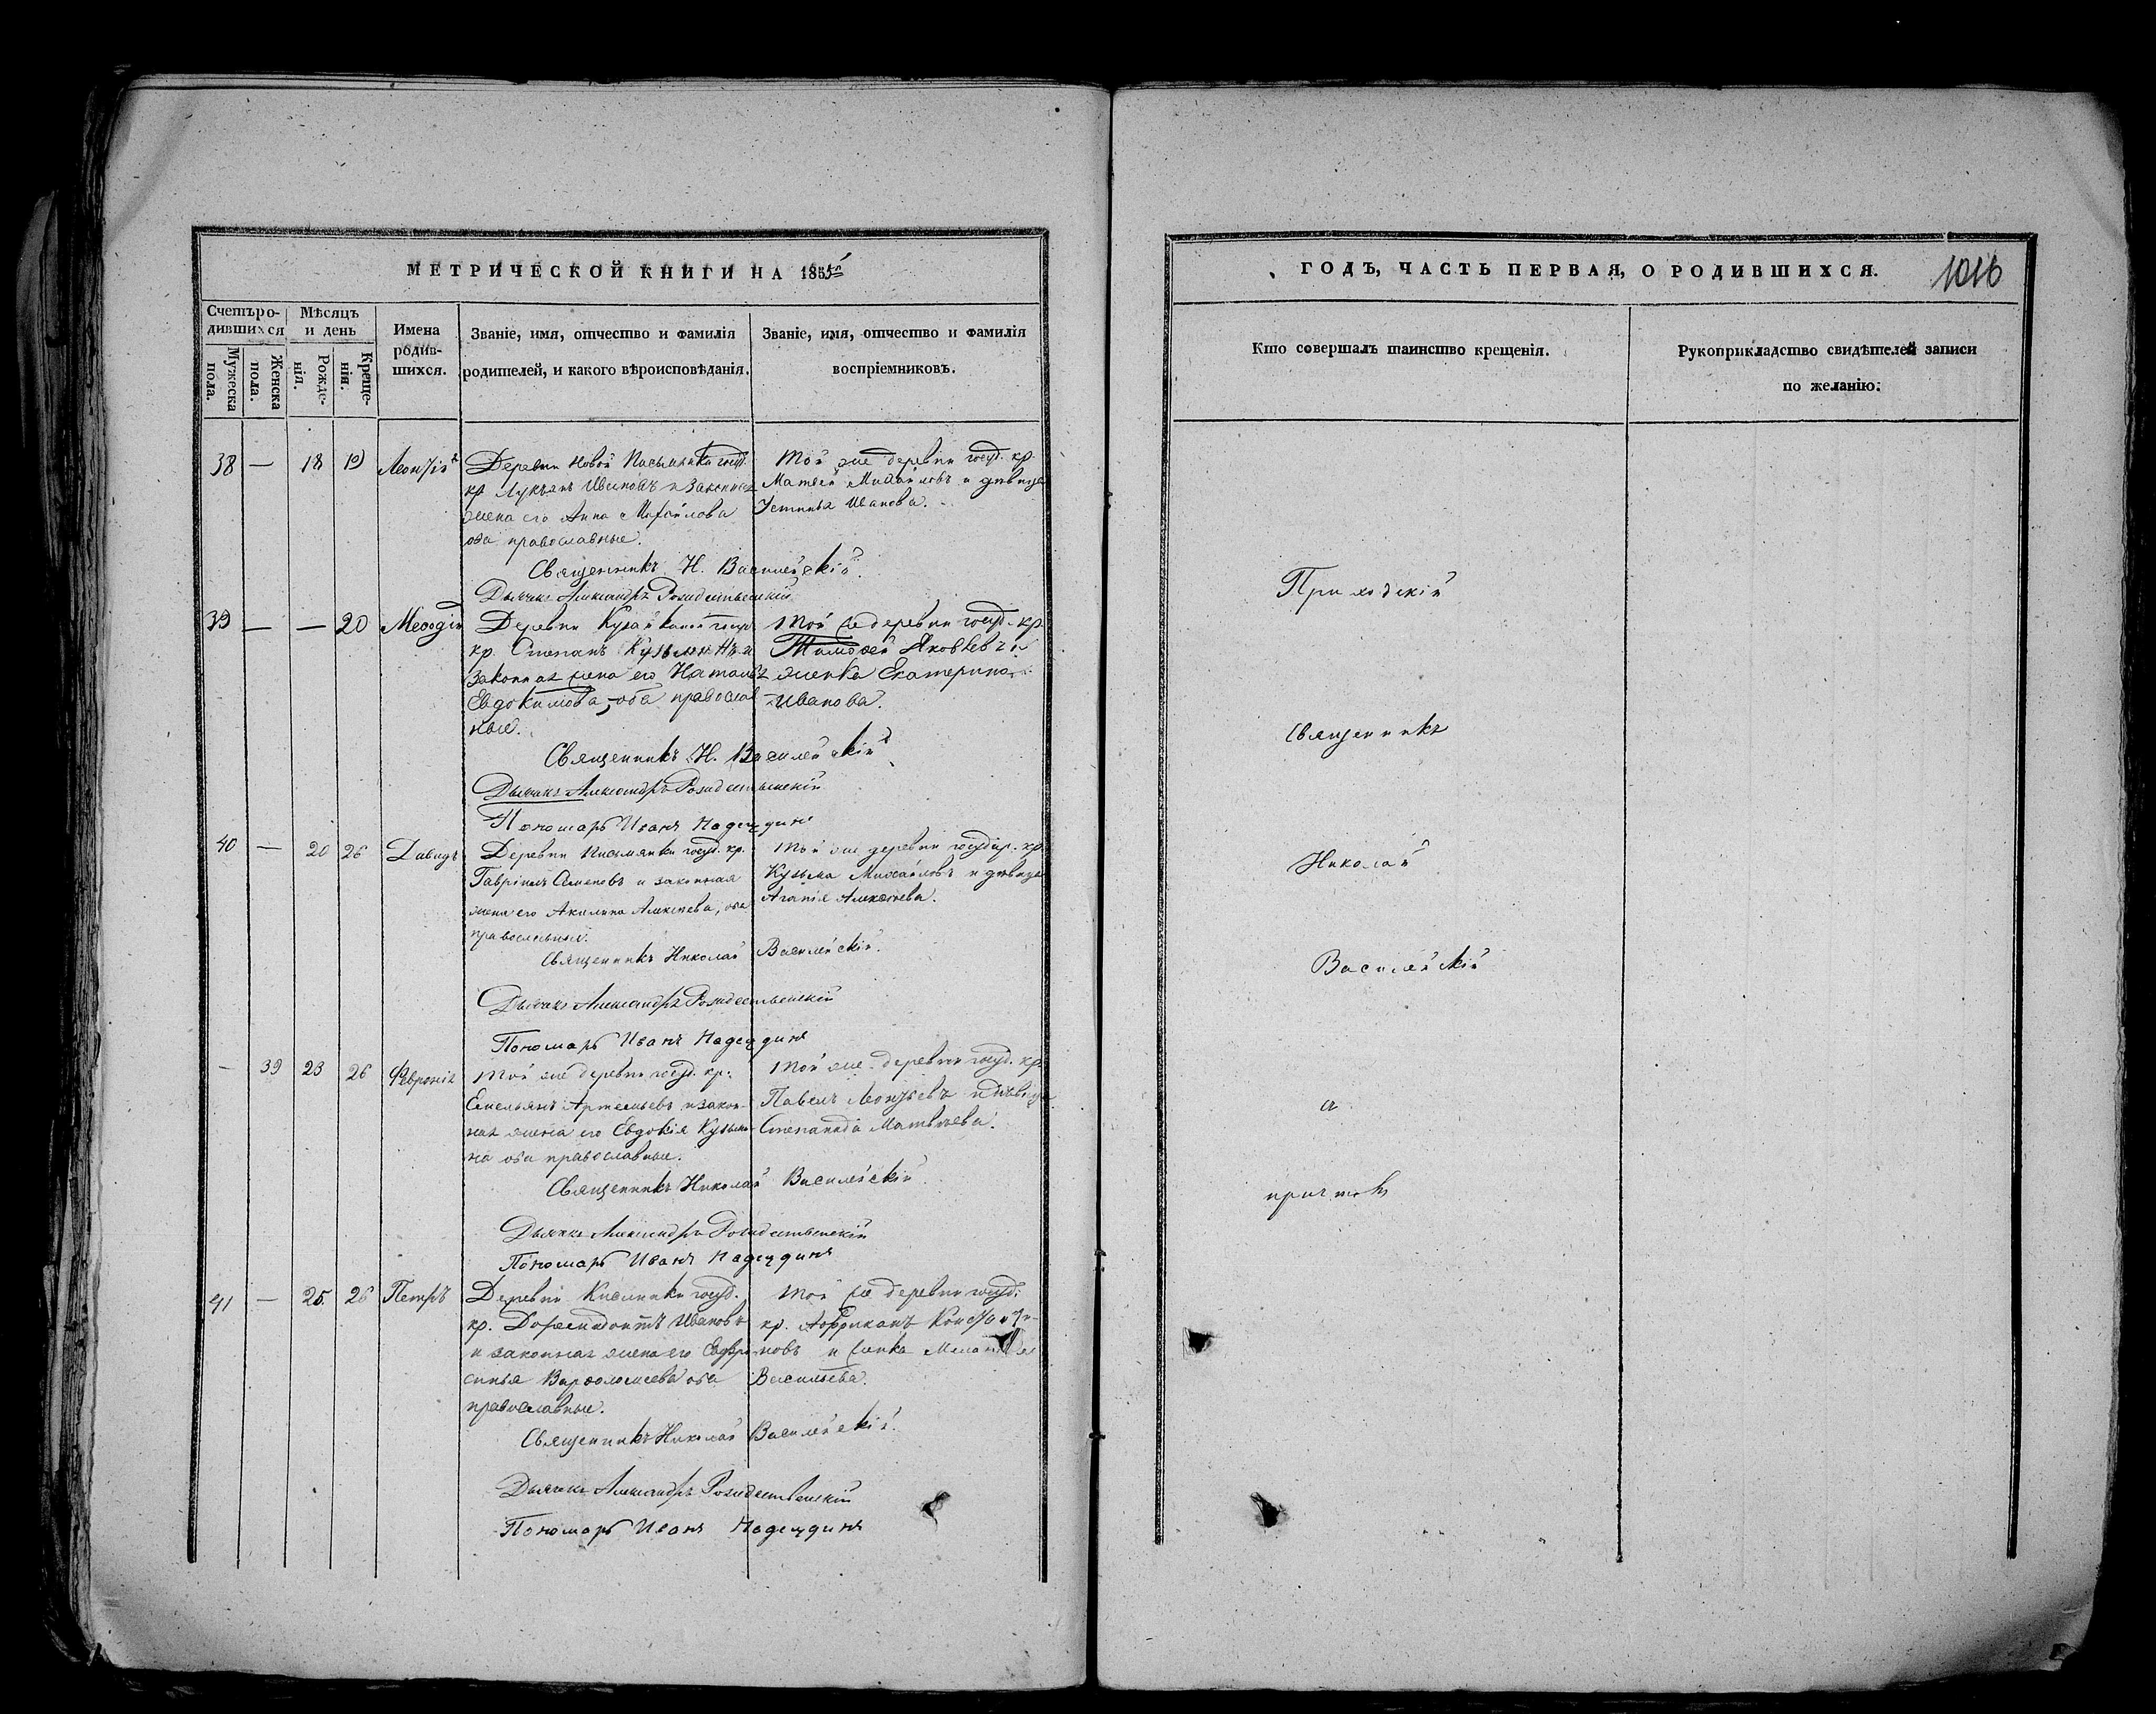 МЕТРИЧЕСКОЙ КНИГИ НА 1855й
Счетъ ро-
дившихся
Мужеска
пола.
Женска
пола.
Мѣсяцъ
и день
Рожде-
нія.
Креще-
нія.
Имена
родив-
шихся.
Званіе, имя, отчество и фамилія
родителей, и какого вѣроисповѣданія.
Званіе, имя, отчество и фамилія
воспріемниковъ.
38 — 18 19 Леонтій
Деревни Новой Письмянки госуд.
кр. Лукьянъ Ивановъ и законная
жена его Анна Михайлова
оба православные.
Той же деревни госуд. кр.
Матвей Михайловъ и дѣвица
Устинья Иванова.
Священникъ Н. Василейскій.
Дьячекъ Александръ Рождественскій
39 — — 20 Меѳодій
Деревни госуд.
кр. Степанъ Кузьминъ и
законная жена его Наталья
Евдокимова, оба православ
ные.
Той же деревни госуд. кр.
Тимоѳей Яковлевъ и
женка Екатерина
Иванова.
Священникъ Н. Василейскій
Дьячекъ Александръ Рождественскій
Пономарь Иванъ Надеждинъ
40 — 20 26 Давидъ
Деревни Письмянки госуд. кр.
Гавріилъ Семеновъ и законная
жена его Акилина Алексѣева, оба
православные.
Той же деревни государ. кр.
Кузьма Михайловъ и дѣвица
Агапія Алексѣева.
Священникъ Николай Василейскій.
Дьячекъ Александръ Рождественскій
Пономарь Иванъ Надеждинъ
— 39 23 26 Февронія
Той же деревни госуд. кр.
Емельянъ Артемьевъ и закон-
ная жена его Евдокія Кузьми-
на оба православные.
Той же деревни госуд. кр.
Павелъ Леонтьевъ и дѣвица
Степанида Матвѣева.
Священникъ Николай Василейскій
Дьячекъ Александръ Рождественскій
Пономарь Иванъ Надеждинъ
41 — 25. 26 Петръ
Деревни госуд.
кр. Дормидонтъ Ивановъ
и законная жена его Евфро-
синья Варѳоломеева оба
православные.
Той же деревни госуд.
кр. Аффриканъ Константи-
новъ и женка
Васильева.
Священникъ Николай Василейскій.
Дьячекъ Александръ Рождественскій
Пономарь Иванъ Надеждинъ
ГОДЪ, ЧАСТЬ ПЕРВАЯ, О РОДИВШИХСЯ.
1016
Кто совершалъ таинство крещенія.
Рукоприкладство свидѣтелей записи
по желанію:
Приходскій
Священникъ
Николай
Василейскій
съ
причтомъ